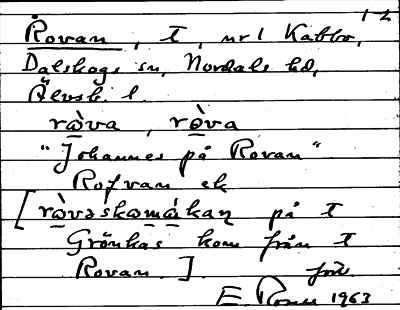 12
Rovan, t, nr 1 Kabbo,
Dalskogs sn, Nordals hd,
Älvsb. l.
ròva, ròva
"Johannes på Rovan"
Rofvan ek
[ròvəskomákaɳ på t
Grönhas kom från t
Rovan.]
E. 1963